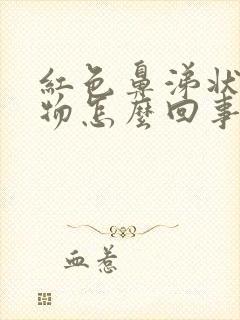 紅色鼻涕狀
物怎麼回事
血惹